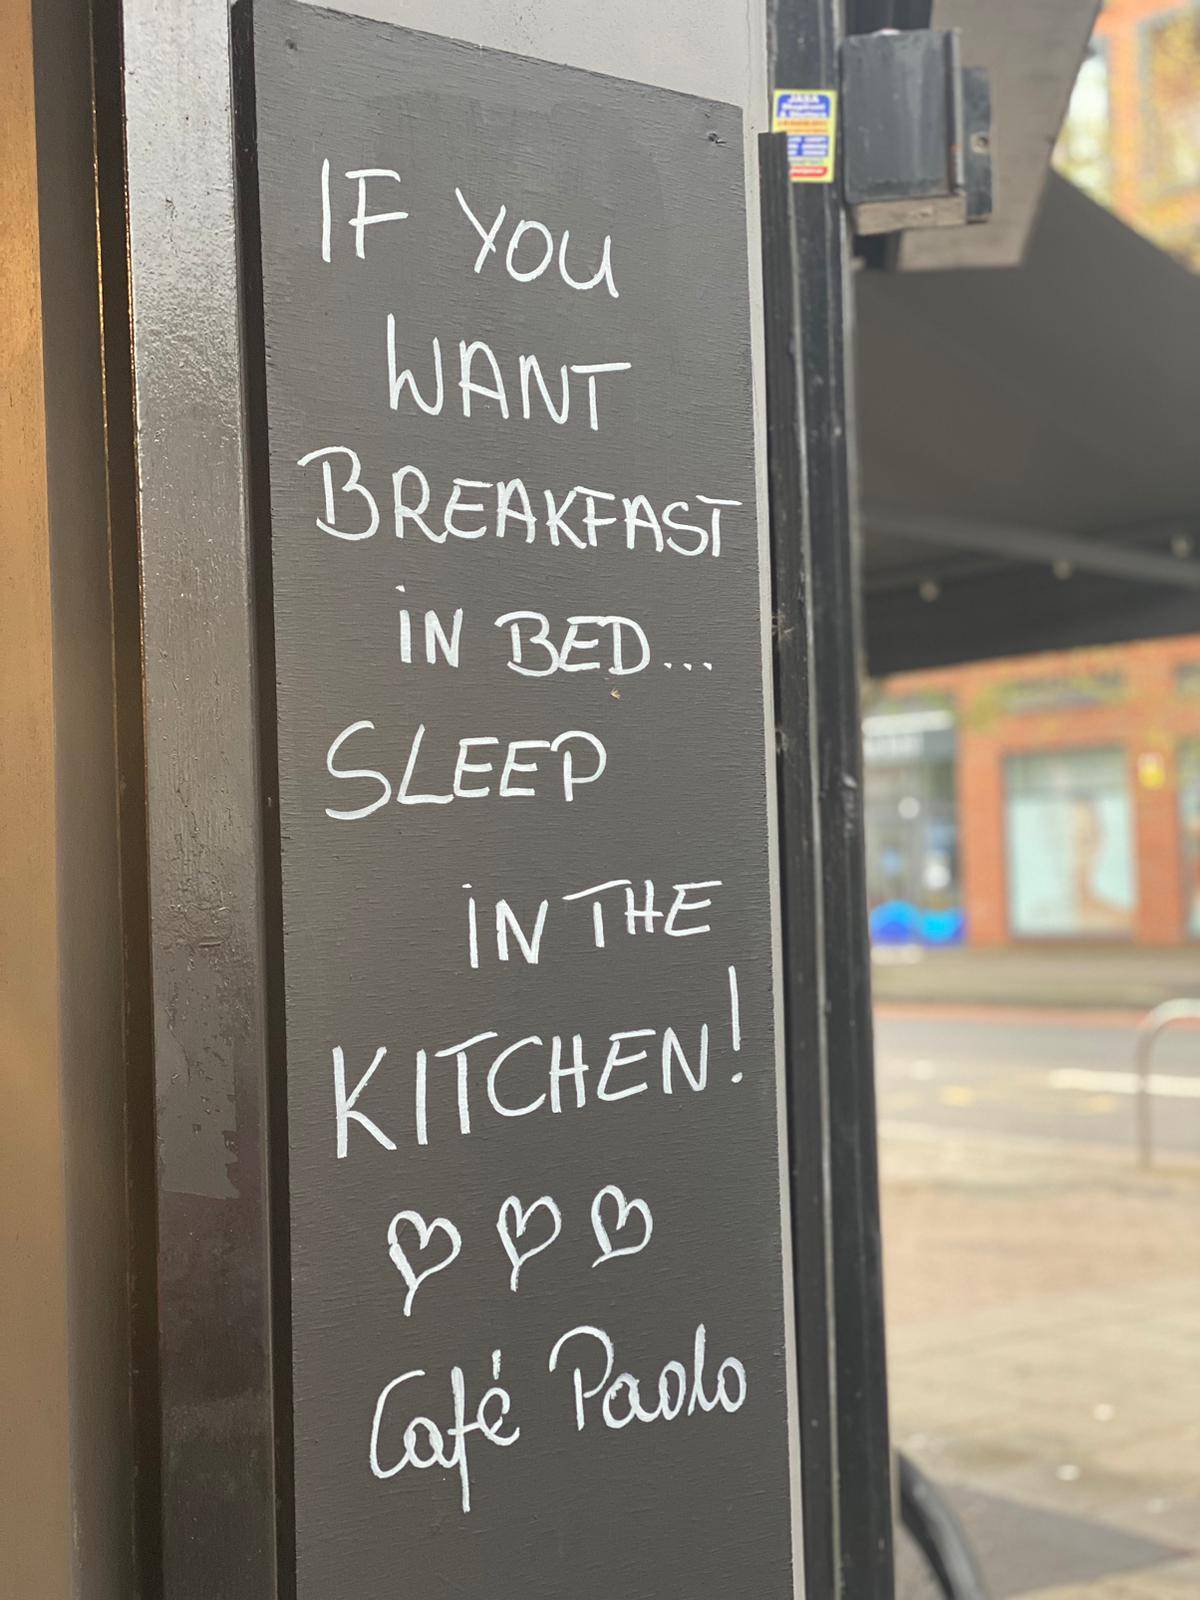 IF YOU
WANT
BREAKFAST
IN BED...
SLEEP
IN THE
KITCHEN!
Café Paolo